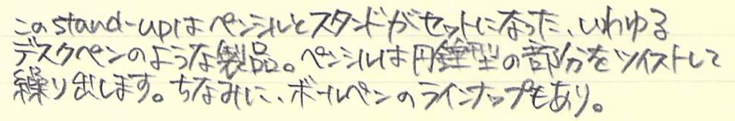 このstand-upはペンシルとスタンドがセットになった、いわゆる
デスクペンのような製品。ペンシルは円錐型の部分をツイストして
繰り出します。ちなみに、ボールペンのラインナップもあり。